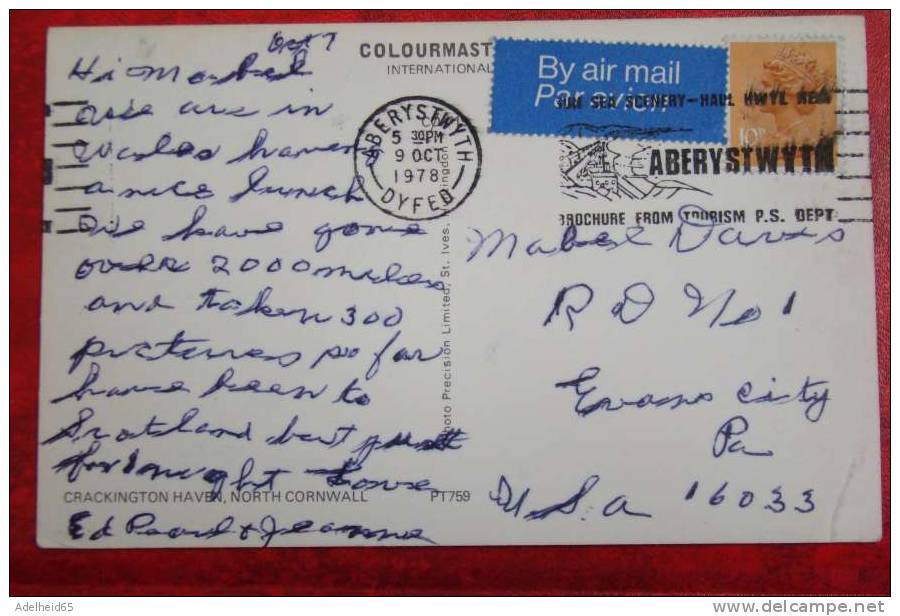 Oct 7
COLOURMAST
INTERNATIONAL
By air mail
Par avion
SUN SEA SCENERY-HAUL HWYL HEA
ABERYSTWYTH
BROCHURE FROM TOURISM P.S. DEPT
10P
ABERYSTWYTH
5 30PM
9 OCT
1978
DYFED
Hi Mabel
We are in
Wales haven
a nice lunch
We have gone
over 2000 miles
and taken 300
pictures so far
have been to
Scotland but just
for 1 night Love
Ed Pearl & Jeanne
CRACKINGTON HAVEN, NORTH CORNWALL PT759
Photo Precision Limited, St. Ives,
Mabel Davis
R D No 1
Evans City
Pa
U S a 16033
Adelheid65